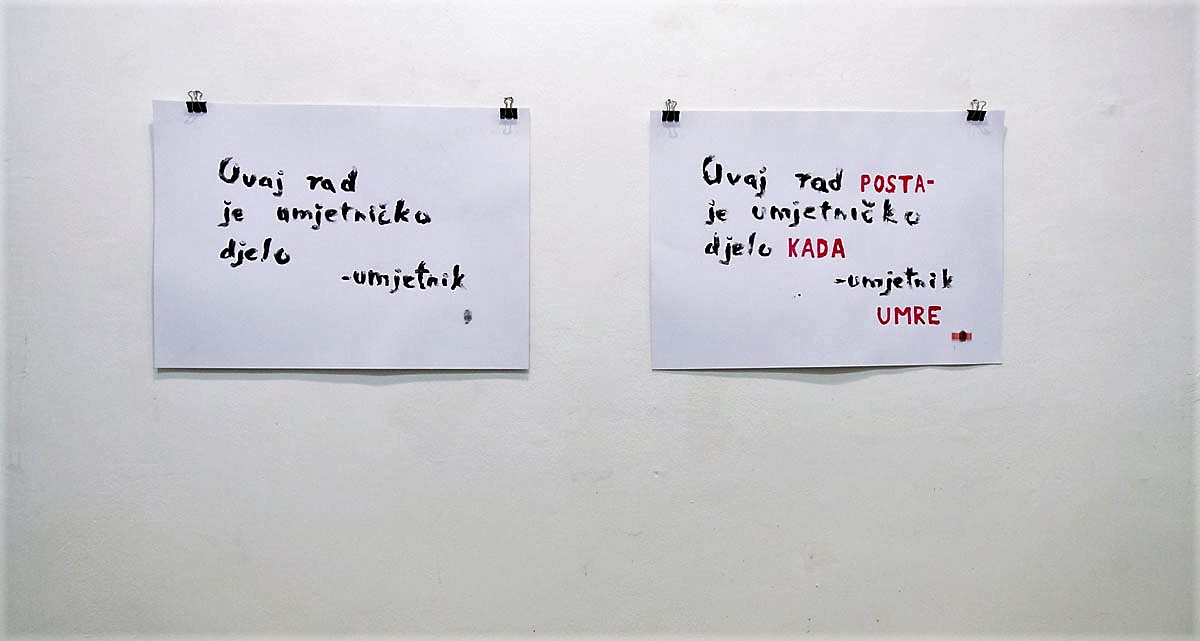 Ovaj rad
je umjetničko
djelo
-umjetnik
Ovaj rad POSTA-
je umjetničko
djelo KADA
-umjetnik
UMRE